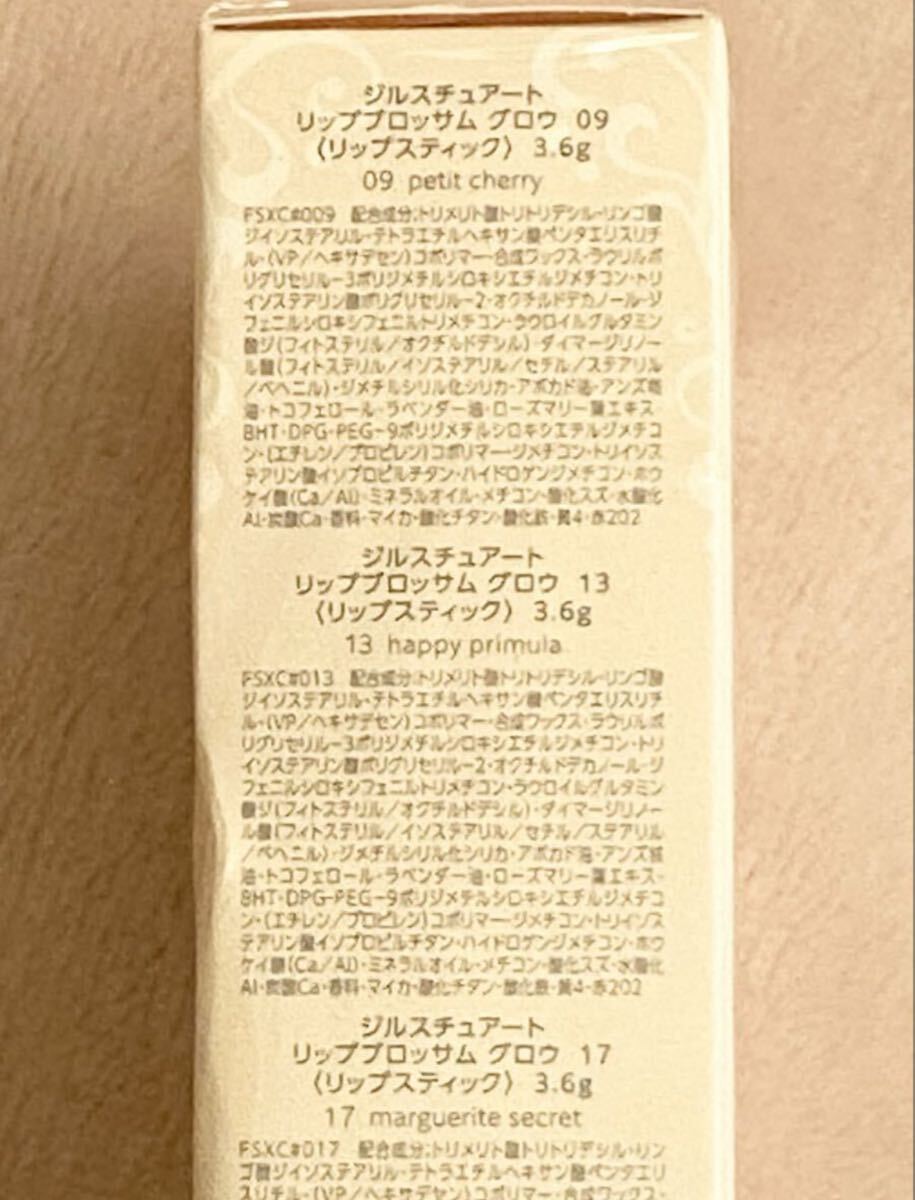 ジルスチュアート
リップブロッサム グロウ 09
〈リップスティック〉 3.6g
09 petit cherry
FSXC#009 配合成分:トリメリト酸トリトリデシル・リンゴ酸
ジイソステアリル・テトラエチルヘキサン酸ペンタエリスリチ
ル・(VP/ヘキサデセン)コポリマー・合成ワックス・ラウリルポ
リグリセリル-3ポリジメチルシロキシエチルジメチコン・トリ
イソステアリン酸ポリグリセリル-2・オクチルドデカノール・ジ
フェニルシロキシフェニルトリメチコン・ラウロイルグルタミン
酸ジ(フィトステリル/オクチルドデシル)・ダイマージリノー
ル酸(フィトステリル/イソステアリル/セチル/ステアリル
/ベヘニル)・ジメチルシリル化シリカ・アボカド油・アンズ核
油・トコフェロール・ラベンダー油・ローズマリー葉エキス・
BHT・DPG・PEG-9ポリジメチルシロキシエチルジメチコ
ン・(エチレン/プロピレン)コポリマー・ジメチコン・トリイソス
テアリン酸イソプロピルチタン・ハイドロゲンジメチコン・ホウ
ケイ酸(Ca/Al)・ミネラルオイル・メチコン・酸化スズ・水酸化
Al・炭酸Ca・香料・マイカ・酸化チタン・酸化鉄・黄4・赤202
ジルスチュアート
リップブロッサム グロウ 13
〈リップスティック〉 3.6g
13 happy primula
FSXC#013 配合成分:トリメリト酸トリトリデシル・リンゴ酸
ジイソステアリル・テトラエチルヘキサン酸ペンタエリスリチ
ル・(VP/ヘキサデセン)コポリマー・合成ワックス・ラウリルポ
リグリセリル-3ポリジメチルシロキシエチルジメチコン・トリ
イソステアリン酸ポリグリセリル-2・オクチルドデカノール・ジ
フェニルシロキシフェニルトリメチコン・ラウロイルグルタミン
酸ジ(フィトステリル/オクチルドデシル)・ダイマージリノー
ル酸(フィトステリル/イソステアリル/セチル/ステアリル
/ベヘニル)・ジメチルシリル化シリカ・アボカド油・アンズ核
油・トコフェロール・ラベンダー油・ローズマリー葉エキス・
BHT・DPG・PEG-9ポリジメチルシロキシエチルジメチコ
ン・(エチレン/プロピレン)コポリマー・ジメチコン・トリイソス
テアリン酸イソプロピルチタン・ハイドロゲンジメチコン・ホウ
ケイ酸(Ca/Al)・ミネラルオイル・メチコン・酸化スズ・水酸化
Al・炭酸Ca・香料・マイカ・酸化チタン・酸化鉄・黄4・赤202
ジルスチュアート
リップブロッサム グロウ 17
〈リップスティック〉 3.6g
17 marguerite secret
FSXC#017 配合成分:トリメリト酸トリトリデシル・リン
ゴ酸ジイソステアリル・テトラエチルヘキサン酸ペンタエリ
スリチル・(VP/ヘキサデセン)コポリマー・合成ワックス・